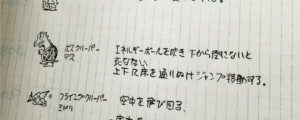 ボスクリーパー
デス
エネルギーボールを吹き下から倒さないと
死なない
上下に床を通りぬけジャンプ移動する。
フライングクリーパー
ミドリ
空中を飛び回る。